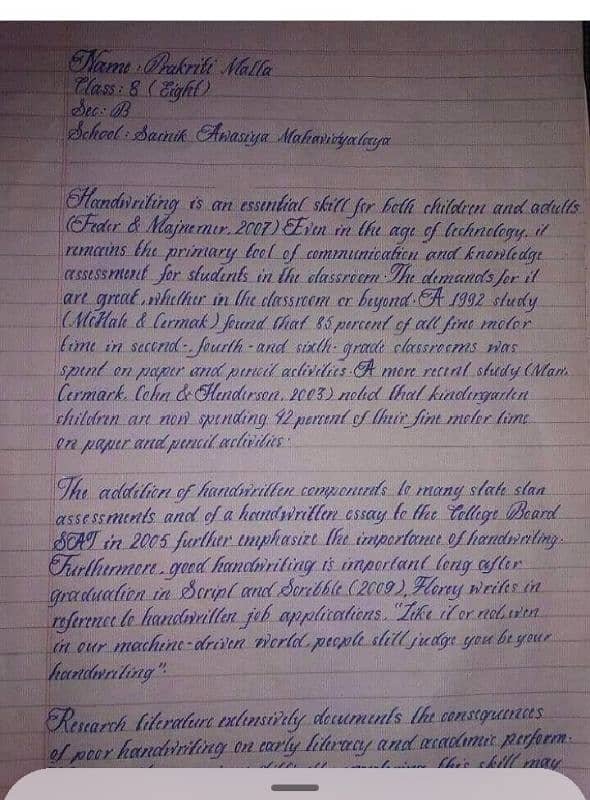 Name : Prakriti Malla
Class : 8 ( Eight )
Sec : B
School : Sainik Awasiya Mahavidyalaya
Handwriting is an essential skill for both children and adults
(Feder & Majnemer, 2007) Even in the age of technology, it
remains the primary tool of communication and knowledge
assessment for students in the classroom. The demands for it
are great, whether in the classroom or beyond. A 1992 study
(McHale & Cermak) found that 85 percent of all fine motor
time in second-, fourth-and sixth-grade classrooms was
spent on paper and pencil activities. A more recent study (Marr,
Cermark, Cohn & Henderson, 2003) noted that kindergarten
children are now spending 42 percent of their fine motor time
on paper and pencil activities.
The addition of handwritten components to many state stan
assessments and of a handwritten essay to the College Board
SAT in 2005 further emphasize the importance of handwriting.
Furthermore, good handwriting is important long after
graduation in Script and Scribble (2009), Florey writes in
reference to handwritten job applications, "Like it or not, even
in our machine-driven world, people still judge you by your
handwriting".
Research literature extensively documents the consequences
of poor handwriting on early literacy and academic perform-
this skill may